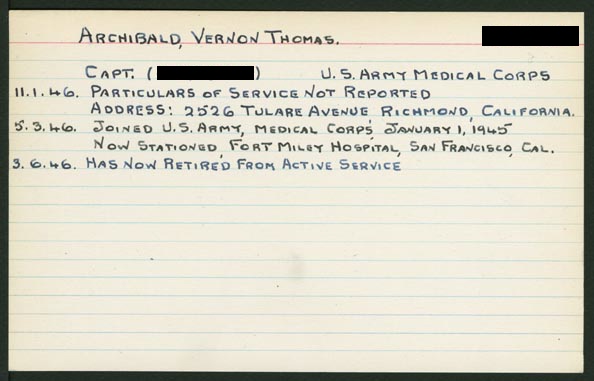 ARCHIBALD, VERNON THOMAS.
CAPT. ( ) U.S. ARMY MEDICAL CORPS
11.1.46. PARTICULARS OF SERVICE NOT REPORTED
ADDRESS: 2526 TULARE AVENUE, RICHMOND, CALIFORNIA.
5.3.46. JOINED U.S. ARMY, MEDICAL CORPS, JANUARY 1, 1945
NOW STATIONED, FORT MILEY HOSPITAL, SAN FRANCISCO, CAL.
3.6.46. HAS NOW RETIRED FROM ACTIVE SERVICE